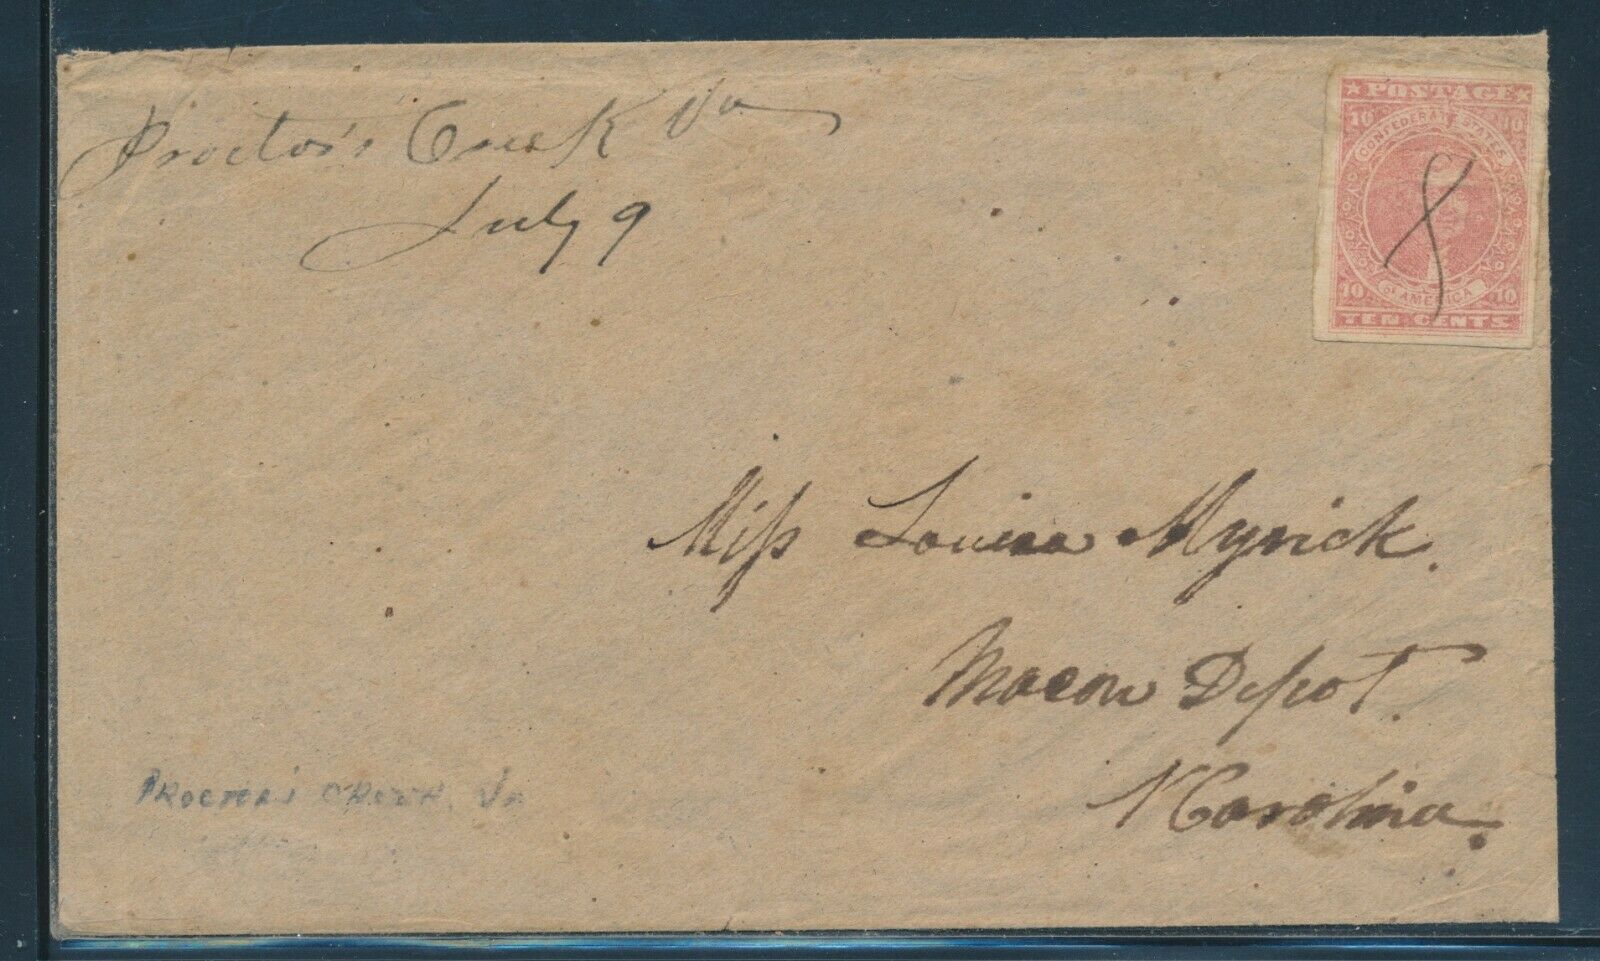 Proctor's Creek Va
July 9
★ POSTAGE ★
10 10
CONFEDERATE STATES
OF AMERICA
10 10
TEN CENTS
Miss Louisa Myrick.
Macon Depot.
N Carolina.
PROCTOR'S CREEK. Va